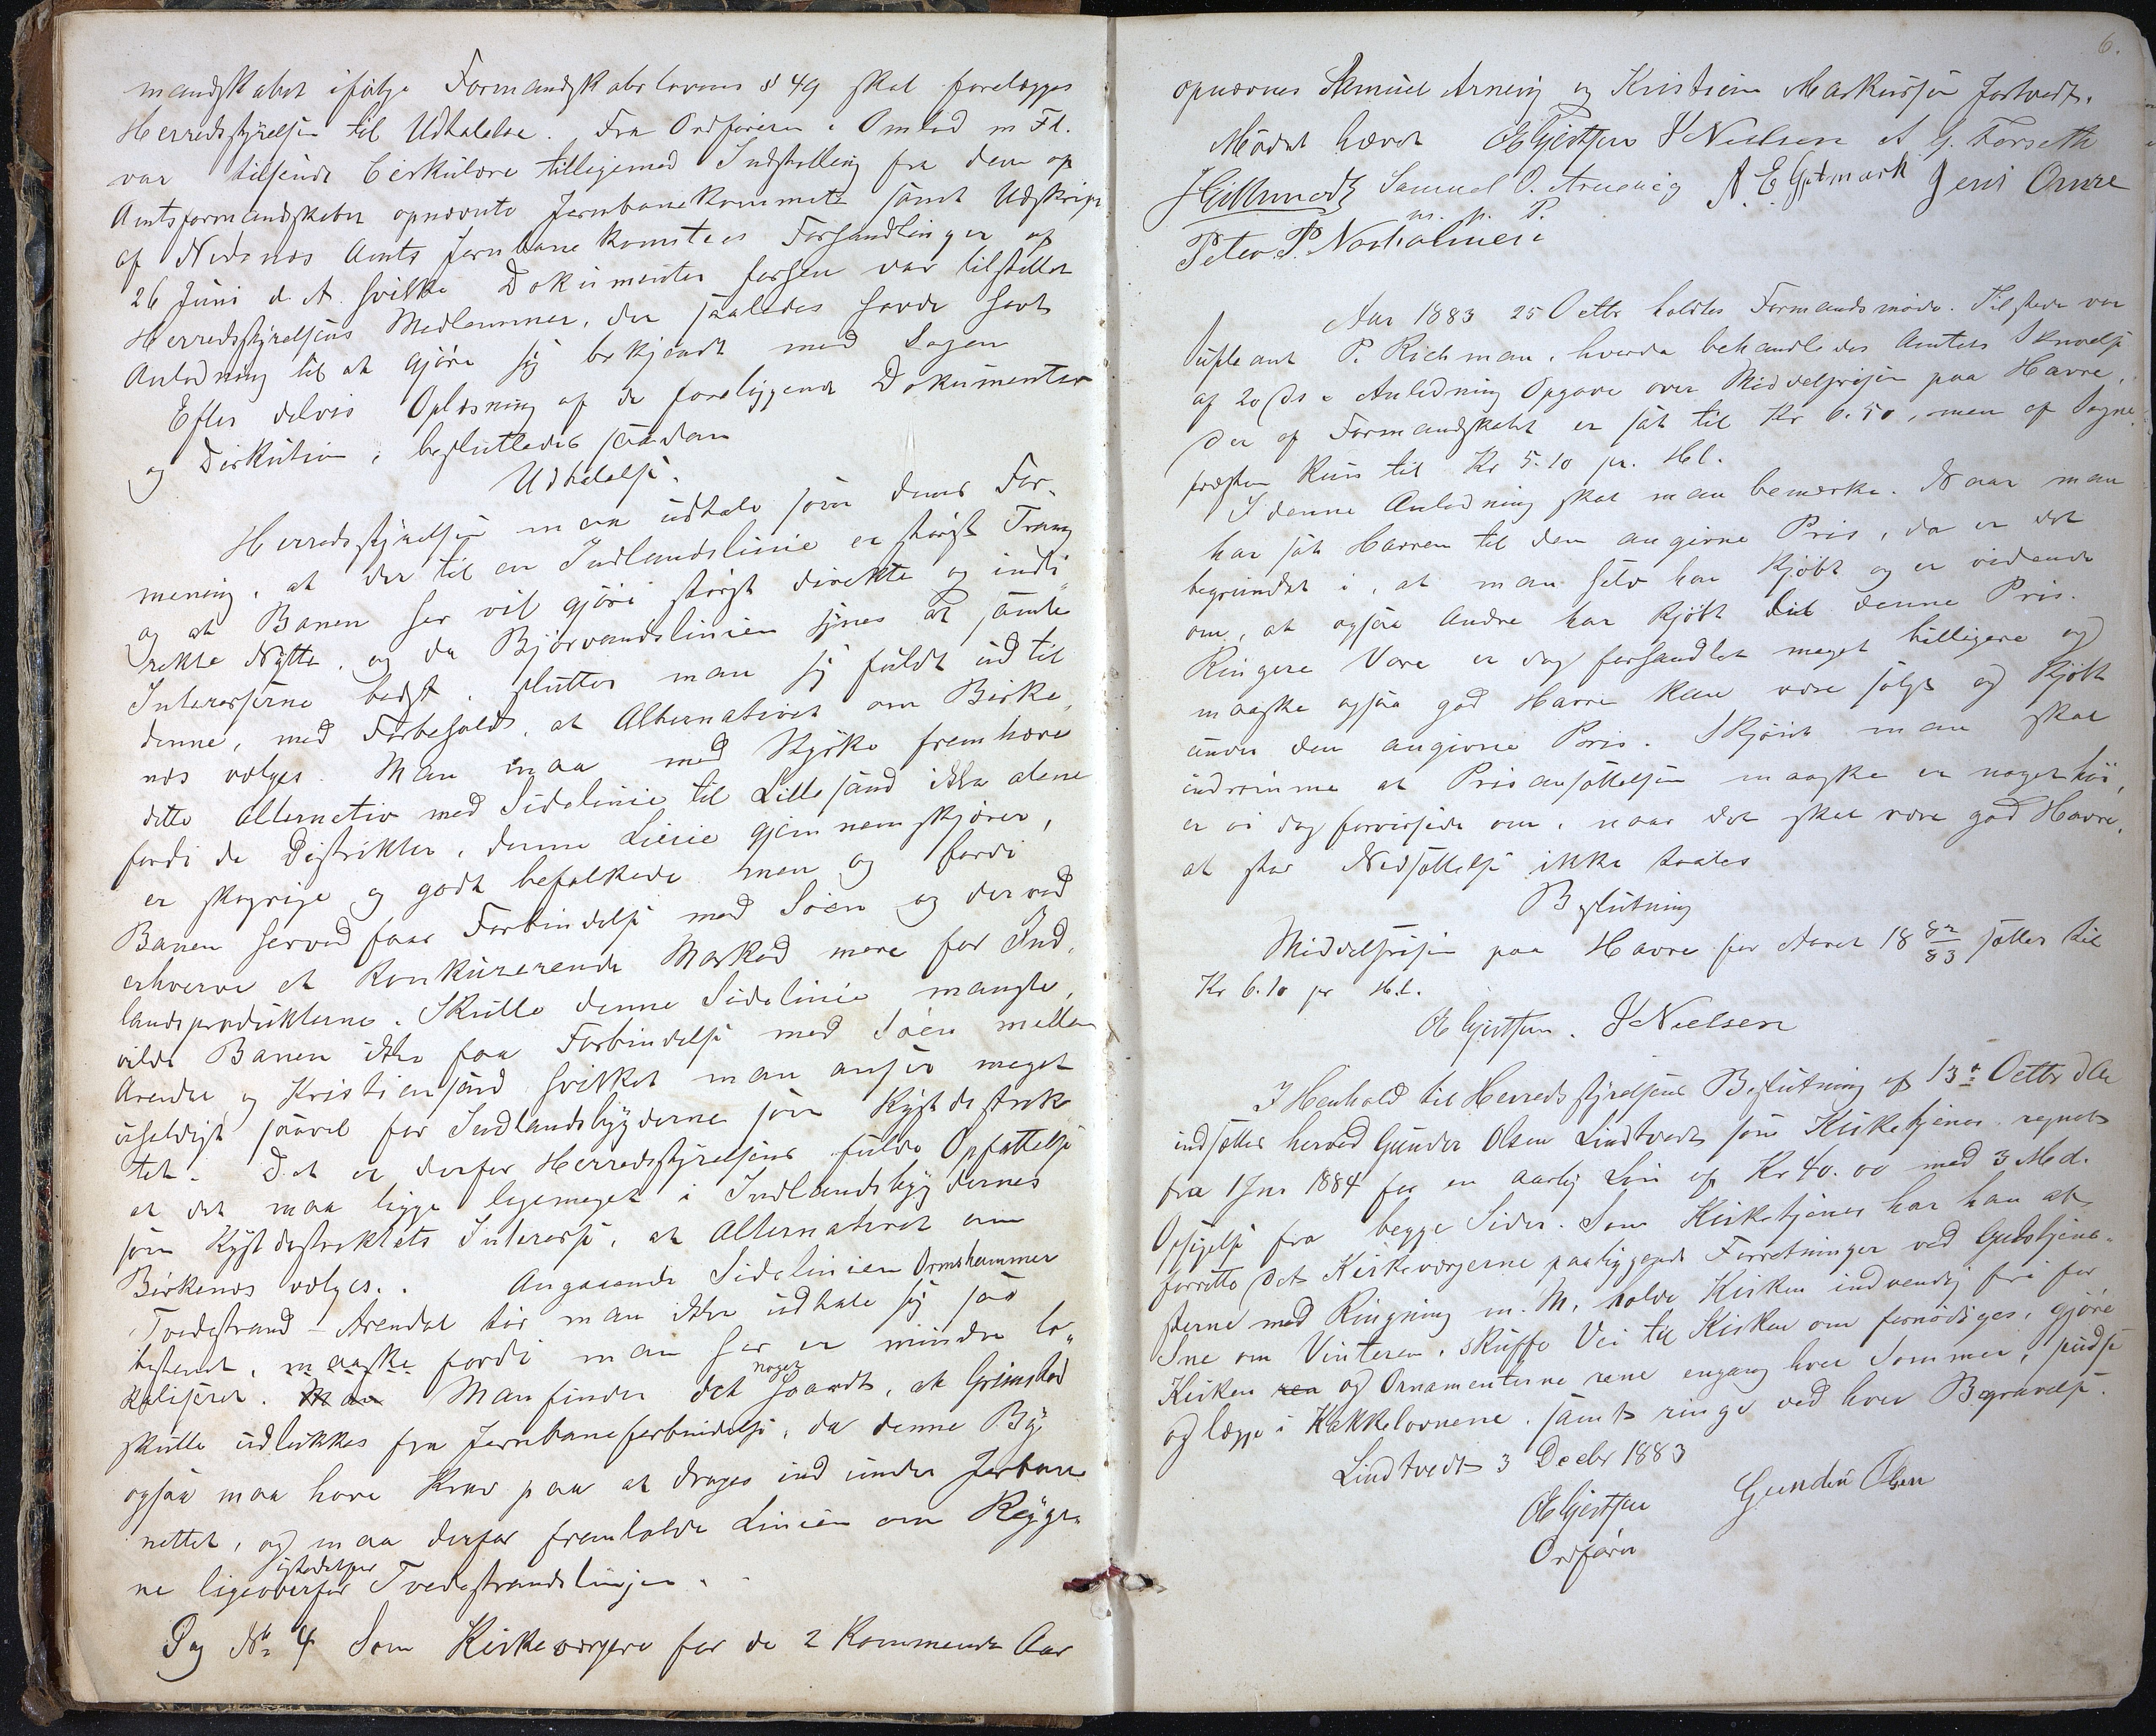 mandskabet ifølge Formandskabslovens § 49 skal forelægges
Herredsstyrelsen til Udtalelse. Fra Ordføreren i Omlad m Fl.
var tilsendt Cirkulære tilligemed Indstilling fra den af
Amtsformandskabet opnævnte Jernbanekommite samt Udskrift
af Nedenes Amts Jernbanekomitees Forhandlinger af
26 Juni d. A. hvilke Dokumenter forhen var tilstillet
Herredsstyrelsens Medlemmer, der saaledes havde havt
Anledning til at gjøre sig bekjendt med Sagen
Efter delvis Oplæsning af de foreliggende Dokumenter
og Diskution, besluttedes saadan
Udtalelse.
Herredsstyrelsen maa udtale som dens For-
mening, at der til en Indlandslinie er størst Trang
og at Banen her vil gjøre størst direkte og indi-
rekte Nytte, og da Bjorvandslinien synes at samle
Interesserne bedst, slutter man sig fuldt ud til
denne, med Forbehold, at Alternativet om Birke-
nes vælges. Man maa med Styrke fremhæve
dette Alternativ med Sidelinie til Lillesand ikke alene
fordi de Distrikter, denne Linie gjennemskjærer,
er skogrige og godt befolkede men og fordi
Banen herved faar Forbindelse med Søen og derved
erhverve et konkurerende Marked mere for Ind-
landsprodukterne. Skulle denne Sidelinie mangle,
vilde Banen ikke faa Forbindelse med Søen mellem
Arendal og Kristiansand hvilket man anser meget
uheldigt saavel for Indlandsbygderne som Kystdistrik
tet. Det er derfor Herredsstyrelsens fulde Opfattelse
at det maa ligge ligemeget i Indlandsbygdernes
som Kystdistriktets Interesse, at Alternativet om
Birkenes vælges. Angaaende Sidelinien Ormshammer
Tvedestrand - Arendal tør man ikke udtale sig saa
bestemt, maaske fordi man her er mindre lo-
kaliseret. Man Man finder det noget haardt, at Grimstad
skulle udlukkes fra Jernbaneforbindelse, da denne By
ogsaa maa have Krav paa at drages ind under Jerbane
nettet, og maa derfor fremholde Linien om Rygge-
ne ligeoverfor Tvedestrandslinjen.
Sag No 4 Som Kirkeværgere for de 2 kommende Aar
6.
opnævnes Samuel Arnevig og Kristian Markussen Fortvedt.
Mødet hævet OEGjertsen J Nielsen A G. Forseth
Samuel O. Arnevig A. E. Jens Omre
m. p. P.
Peter P. Nørholmen
Aar 1883 25 Octbr holdtes Formandsmøde. Tilstede var
Supleant P. Richman, hvorda behandledes Amtets Skrivelse
af 20 ds i Anledning Opgave over Middelprisen paa Havre,
der af Formandskabet er sat til Kr 6.50, men af Sogne
præsten kuns til Kr 5.10 pr. Hl.
I denne Anledning skal man bemærke. Naar man
har sat Havren til den angivne Pris, da er det
begrundet i, at man selv har kjøbt og er vidende
om, at ogsaa andre har kjøbt til denne Pris.
Ringere Vare er dog forhandlet meget billigere og
maaske ogsaa god Havre kan være solgt og kjøbt
under den angivne Pris. Skjønt man skal
indrømme at Prisansættelsen maaske er noget høi,
er vi dog forvissede om, naar det skal være god Havre,
at stor Nedsættelse ikke taales
Beslutning
Middelprisen paa Havre for Aaret 18 82/83 sættes til
Kr 6.10 pr Hl.
OEGjertsen. J Nielsen
I Henhold til Herredsstyrelsens Beslutning af 13de Octbr dA
indsættes herved Gunder Olsen Lindtvedt som Kirketjener regnet
fra 1 Jnr 1884 for en aarlig Løn af Kr 40.00 med 3 Md.
Opsigelse fra begge Sider. Som Kirketjener har han at
forrette det Kirkeværgerne paaliggende Forretninger ved Gudstjene-
sterne med Ringning m. M. holde Kirken indvendig fri for
Sne om Vinteren, skuffe Vei til Kirken om fornødiges, gjøre
Kirken ren og Ornamenterne rene engang hver Sommer, pudse
og lægge i Kakkelovnene, samt ringe ved hver Begravelse.
Lindtvedt 3 Decbr 1883
OEGjertsen Gunder Olsen
Ordfører